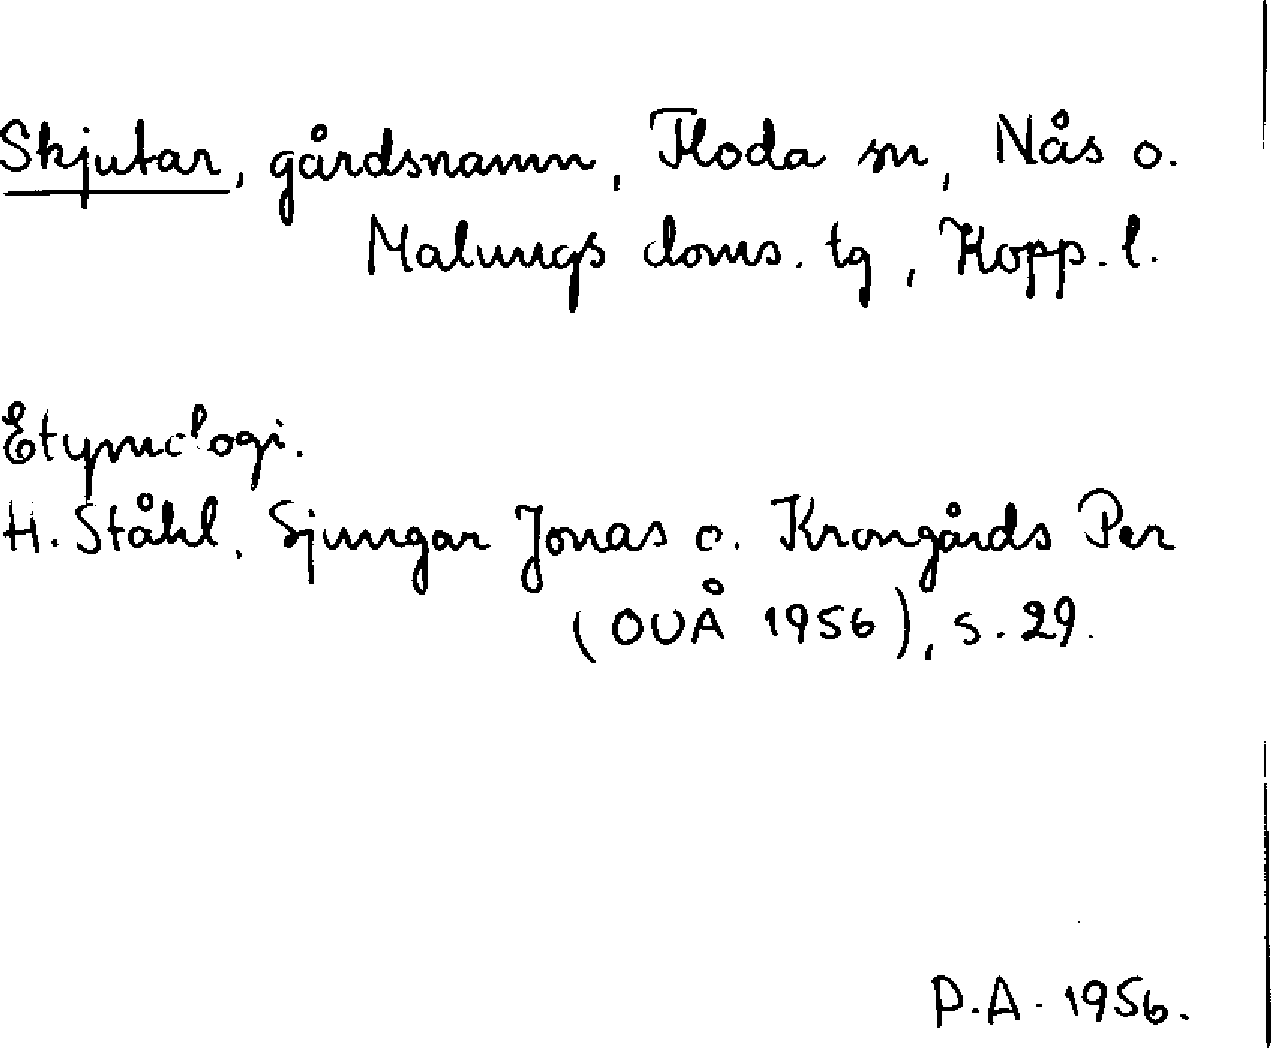 Skjutar, gårdsnamn, Floda sn, Nås o.
Malungs doms. tg, Kopp. l.
Etymologi.
H. Ståhl, Sjungar Jonas o. Krongårds Per
(OUÅ 1956), s. 29.
P.A. 1956.